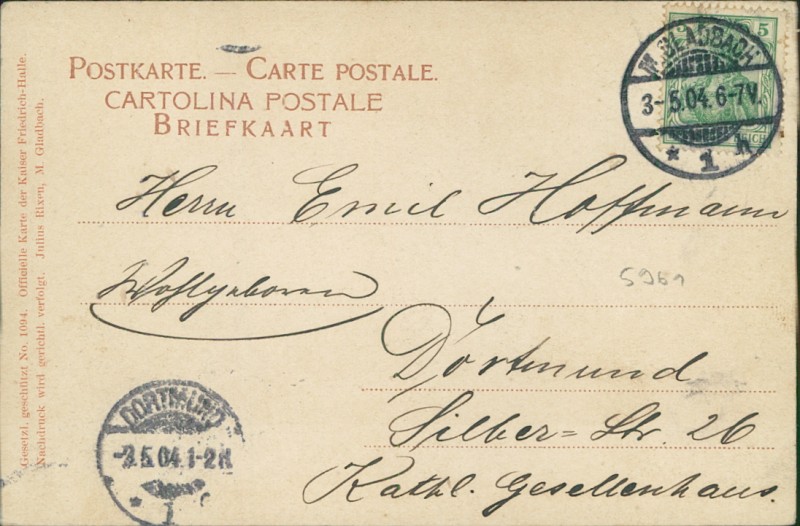 POSTKARTE. — CARTE POSTALE.
CARTOLINA POSTALE
BRIEFKAART
5
M. GLADBACH
3-5.04. 6-7V.
* 1 h
Herrn Emil Hoffmann
Wohlgeboren
5961
Dortmund
Silber=Str. 26
Kathl. Gesellenhaus.
DORTMUND
-3.5.04.1-2N
* 1
Gesetzl. geschützt No. 1094. Officielle Karte der Kaiser Friedrich-Halle.
Nachdruck wird gerichtl. verfolgt. Julius Rixen, M. Gladbach.